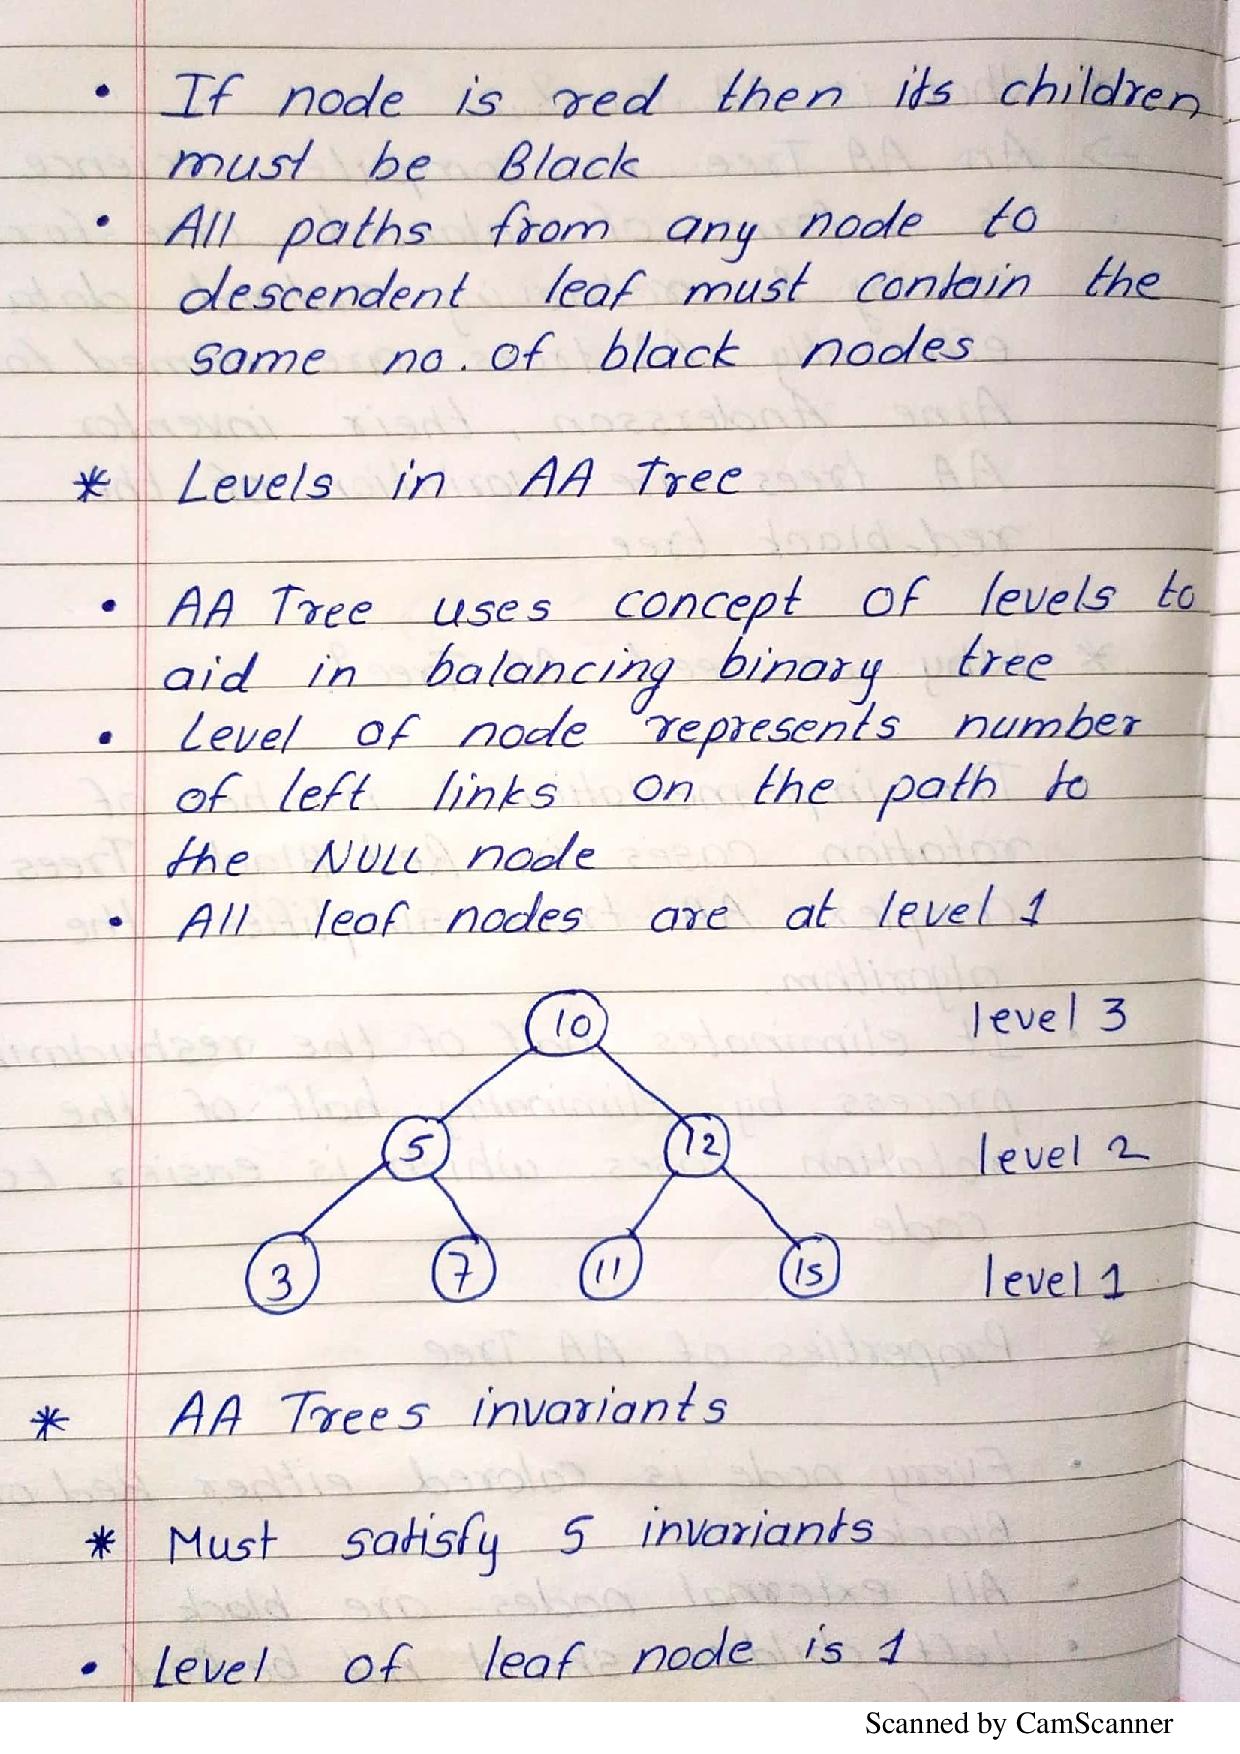 • If node is red then its children
must be Black
• All paths from any node to
descendent leaf must contain the
same no. of black nodes
* Levels in AA Tree
• AA Tree uses concept of levels to
aid in balancing binary tree
• Level of node represents number
of left links on the path to
the NULL node
• All leaf nodes are at level 1
10 level 3
5 12 level 2
3 7 11 15 level 1
* AA Trees invariants
* Must satisfy 5 invariants
• Level of leaf node is 1
Scanned by CamScanner